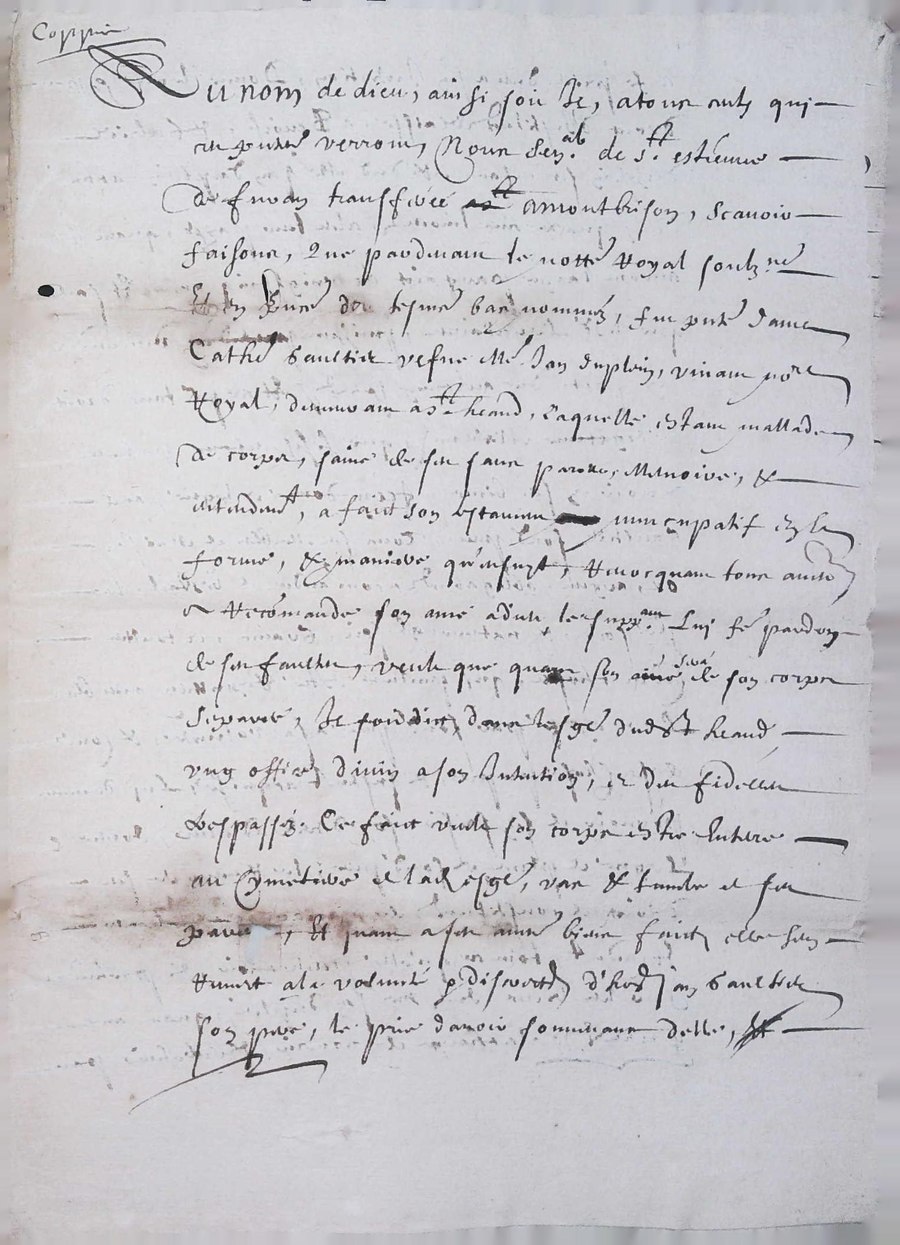 Coppie
Au nom de dieu, ainsi soit Il, a tous ceulx qui
ces pntes verront, Nous de st estienne
de furan transferée a montbrison, scavoir
faisons, Que pardevant le nottre Royal soubzne
Et en pnce des tesmoings bas nommez, fut pnte dame
Cathe Gaultier vefve Me Jan duplein, vivant nore
Royal, demeurant a St heand, Laquelle estant mallade
de corps, saine de ses sens parolle, Memoire, &
entendemt, a faict son testament nuncupatif en la
forme, & maniere qu'ensuyt, Revocquant tous aultres
Recomande son ame a dieu le supplnt Luy fe pardon
de ses faultes, veult que quand son ame sera de son corps
Separée, Il soit dict dans lesglise dud St heand
ung office divin a son Intention, et des fidelles
trespassez. Ce faict veult son corps estre Enterre
au Cymetiere de lad esglise, vas & tumbe de ses
parens, Et quant a ses aultres biens faictz elle sen
Remect a la volunté & discretion d'hed Jan Gaultier
son pere, le prie davoir souvenance delle,